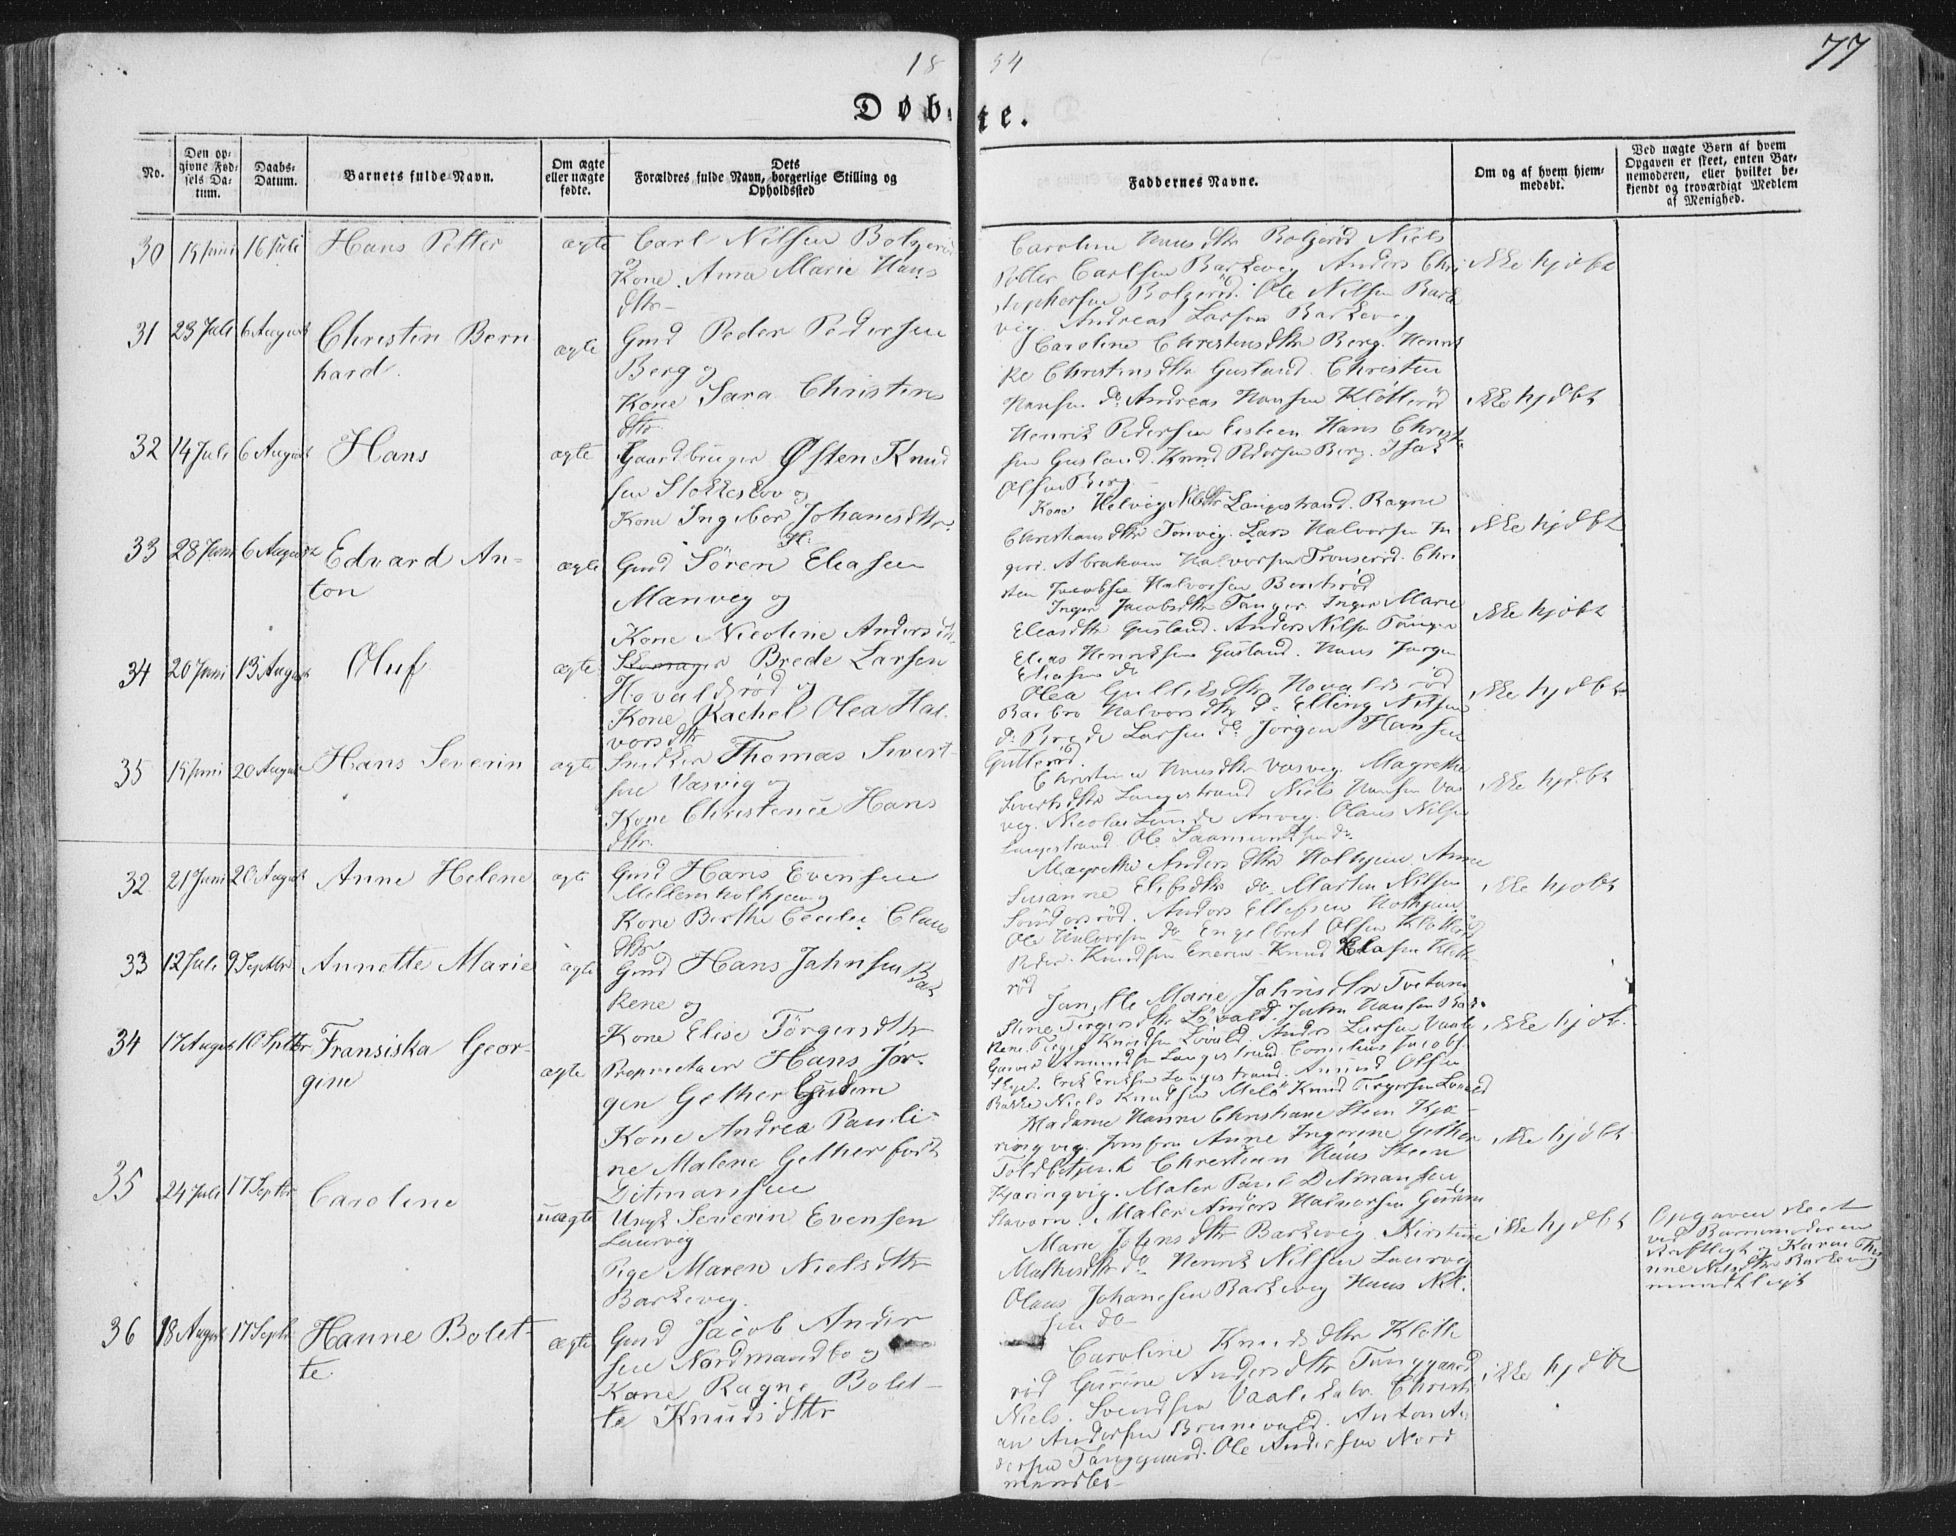 18 54
77
Døbte.
No.
Den op-
givne Fød-
sels Da-
tum.
Daabs-
Datum.
Barnets fulde Navn.
Om ægte
eller uægte
fødte.
Dets
Forældres fulde Navn, borgerlige Stilling og
Opholdssted
Faddernes Navne.
Om og af hvem hjem-
medøbt.
Ved uægte Børn af hvem
Opgaven er skeet, enten Bar-
nemoderen, eller hvilket be-
kjendt og troværdigt Medlem
af Menighed.
30 15 Juni 16 Juli Hans Petter ægte
Carl Nilsen Bolgerød
og
Kone Anna Marie Hans
dtr
Caroline Hansdtr Bolgerød Niels
Petter Carlsen Barkevig Anders Chri
stophersen Bolgerød. Ole Nilsen Barke
vig. Andreas Larsen Barkevig
ikke hjdøbt
31 23 Juli 6 August Christen Bern
hard. ægte
Gmd Peder Pedersen
Berg og
Kone Sara Christens
dtr
Caroline Christensdtr Berg. Henri
ke Christensdtr Gusland. Christen
Hansen do Andreas Hansen Kløtterød
Henrik Pedersen Eisteen Hans Christen
sen Gusland. Knud Pedersen Berg. Isak
Olsen Berg
ikke hjdøbt
32 14 Juli 6 August Hans ægte
Gaardbruger Østen Knud
sen Stokkeskov og
Kone Ingebor Johanesdtr
Kone Helvig Nilsdtr Langestrand. Ragne
Christiansdtr Tonvig. Lars Halvorsen
Abraham Halvorsen Tronserød. Chri
sten Jacobsen Halvorsen Bentsrød
ikke hjdøbt
33 28 Juni 6 August Edvard An-
ton ægte
Gmd Søren Eleasen
Manveg og
Kone Nicoline Andersdtr
Inger Jacobsdtr Tanger. Inger Marie
Eleasdtr Gusland. Anders Nilsen Tanger
Elias Henriksen Gusland. Hans Jørgen
Eliasen do
ikke hjdøbt
34 20 Juni 13 August Oluf ægte
Skomager Brede Larsen
Hovaldsrød og
Kone Rachel Olea Hal-
vorsdtr
Olea Gulliksdtr Hovaldsrød
Barbro Halvorsdtr do Elling Nilsen
do Brede Larsen do Jørgen Hansen
Gullerød.
ikke hjdøbt
35 15 Juni 20 August Hans Severin ægte
Snedker Thomas Sivert
sen Vasvig og
Kone Christence Hans
dtr.
Christence Hansdtr Vasvig. Magrethe
Sivertsdtr Langestrand Niels Hansen Vas
vig. Nicolai Lunde Anvig. Olaus Nilsen
Langestrand. Ole Saamundsen do
ikke hjdøbt
32 21 Juni 20 August Anne Helene ægte
Gmd Hans Evensen
Mellemholhjem og
Kone Berthe Cecilie Claus
dtr
Magrethe Andersdtr Holhjem. Anne
Susanne Elefsdtr do Martin Nilsen
Sondersrød. Anders Ellefsen Holhjem
Ole Halvorsen do Engelbret Olsen Kløtterød
Peder Knudsen Eneren Knud Elasen Kløtte
rød
ikke hjdøbt
33 12 Juli 9 Septbr Annette Marie ægte
Gmd Hans Jahnsen Bak
kene og
Kone Elise Törgersdtr
Marie Jahnsdtr Tvetane
Stine Tørgersdtr Løvald. Jahn Hansen Bak
kene. Törger Knudsen Løvald. Anders Larsen
Amundsen Langestrand. Cornelius Jacobs
Erik Eriksen Langestrand. Amund Olsen
Bakke Niels Knudsen Melø Knud Törgersen Løvald
ikke hjdøbt
34 17 August 10 Septbr Fransiska Geor-
gine ægte
Proprietair Hans Jør-
gen Gether Gudem
Kone Andrea Pauli-
ne Malene Gether født
Ditmansen
Madame Hanne Christiane Steen Kjæ-
ringvig. Jomfru Anne Ingerine Gether
Toldbetjent Christian Hans Steen
Kjæringvig. Maler Paul Ditmansen
Stavern. Maler Anders Halvorsen Gudem
ikke hjdøbt
35 24 Juli 17 Septbr Caroline uægte
Ungk Severin Evensen
Laurvig
Pige Maren Nielsdtr
Barkevig.
Marie Johnsdtr Barkevig. Kirstine
Mathisdtr do Henrik Nilsen Laurvig
Olaus Johanesen Barkevig Hans Niel-
sen do
ikke hjdøbt
Opgaven skeet
ved Barnemoderen
skriftligt og Karen Thri
ne Nilsdtr Barkevig
mundtligt
36 18 August 17 Septbr Hanne Bolet-
te ægte
Gmd Jacob Ander
sen Nordmandbo og
Kone Ragne Bolet-
te Knudsdtr
Caroline Knudsdtr Kløtte
rød Gurine Andersdtr Tanggaard
Niels Svendsen Vaaleskov. Christi
an Andersen Brunevald. Anton An
dersen Tanggaard. Ole Andersen Nord
mandbo
ikke hjdøbt